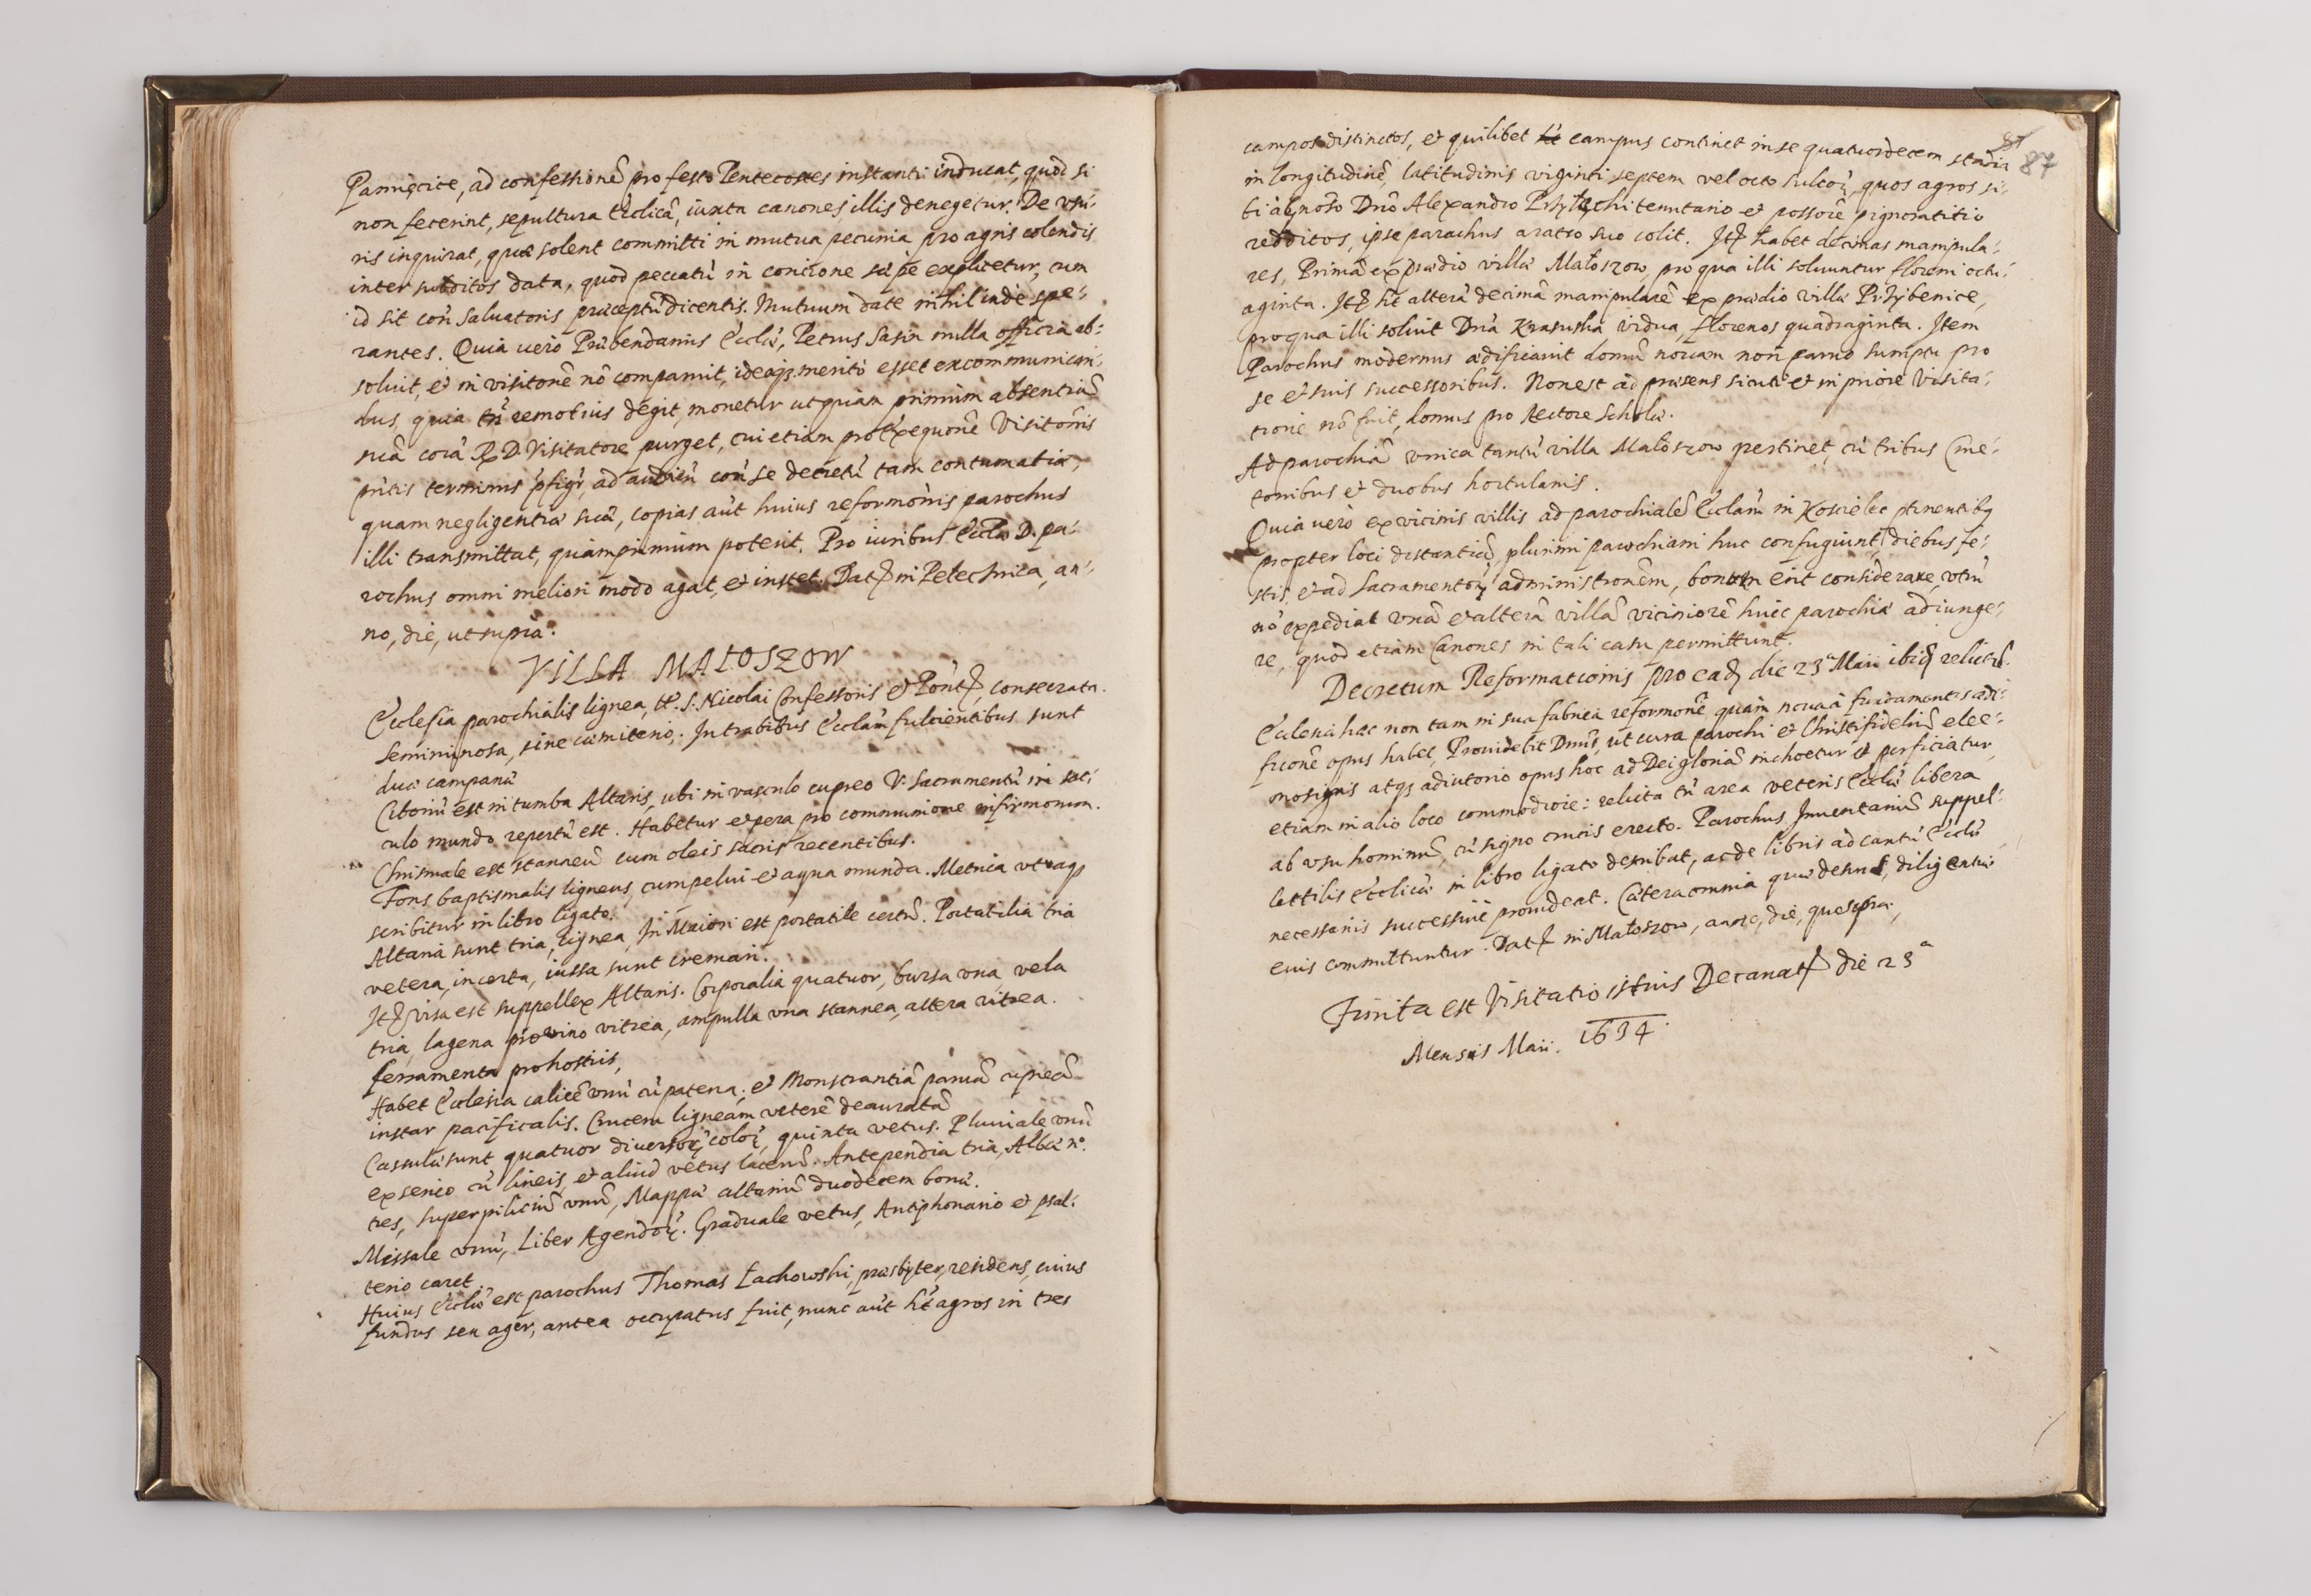 Pamięcice, ad confessionẽ pro festo Pentecostes instanti inducat, quod si
non fecerint, sepultura Ecclicã, iuxta canones illis denegetur. De usu-
ris inquirat, quæ solent committi in mutua pecunia pro agris colendis
inter subditos data, quod peccatũ in concione sæpe explicetur, cum
id sit con̄ Saluatoris præceptũ dicentis. Mutuum date nihil inde spe-
rantes. Quia uero Præbendarius Eccliæ, Petrus Sasin nulla officia ab-
soluit, et in visitonẽ nõ comparuit, ideoqs merito esset excommunican-
dus, quia tñ remotius degit, monetur ut quàm primùm absentiã
suã corã R. D. Visitatore purget, cui etiam pro exequonẽ Visitonis
pñtis terminus p̃figr, ad audien̄ con̄ se decretũ tam contumatiæ,
quam negligentiæ suæ, copias aũt huius reformonis parochus
illi transmittat, quàmprimùm poterit. Pro iuribus Eccliæ D. pa-
rochus omni meliori modo agat, et instet. Dat in Pelechnica, an-
no, die, ut supra.
VILLA MAŁOSZOW
Ecclesia parochialis lignea, tt. S. Nicolai Confessoris et Pont, consecrata.
Semiruinosa, sine cœmiterio. In trabibus Ecclam̄ fulcientibus sunt
duæ campanæ
Ciboriũ est in tumba Altaris, ubi in vasculo cupreo V. Sacramentũ in sac-
culo mundo repertũ est. Habetur et pera pro communione infirmorum.
Chrismale est stanneũ cum oleis sacris recentibus.
Fons baptismalis ligneus, cum pelui et aqua munda. Metrica utraqs
scribitur in libro ligato.
Altaria sunt tria, lignea, In Maiori est portatile certũ. Portatilia tria
vetera, incerta, iussa sunt cremari.
It visa est suppellex Altaris. Corporalia quatuor, bursa una, vela
tria, lagena pro vino vitrea, ampulla una stannea, altera vitrea.
ferramenta pro hostiis,
Habet Ecclesia calicẽ unũ cũ patena, et Monstrantiã paruã cupreã
instar pacificalis. Crucem ligneam veterẽ deauratã
Casulæ sunt quatuor diuersoꝝ coloꝝ, quinta vetus. Pluuiale unũ
ex serico cũ lineis, et aliud vetus lacerũ. Antependia tria, Albæ n.
tres, superpiliciũ unũ, Mappæ altariũ duodecem bonæ.
Missale unũ, Liber Agendoꝝ. Graduale vetus, Antiphonario et psal-
terio caret
Huius Eccliæ est parochus Thomas Łachowski, præsbyter, residens, cuius
fundus seu ager, antea occupatus fuit, nunc aũt ht agros in tres
87
campos distinctos, et quilibet campus continet in se quatuordecem stadia
in longitudinẽ, latitudinis viginti septem vel octo sulcoꝝ, quos agros si-
bi à gnoso Dño Alexandro Przyłęcki tenutario et possore pignoratitio
redditos, ipse parochus aratro suo colit. It habet decimas manipula-
res, Primã ex prædio villæ Małoszow, pro qua illi soluuntur floreni octu-
aginta. It ht alterã decimã manipularẽ ex prædio villæ Przybenice,
pro qua illi soluit Dña Krasuska vidua, florenos quadraginta. Item
Parochus modernus ædificauit domũ nouam non paruo sumptu pro
se et suis successoribus. Non est ad præsens sicuti et in priore Visita-
tione nõ fuit, domus pro Rectore Scholæ.
Ad parochiã unica tantũ villa Małoszow pertinet, cũ tribus Cme-
tonibus et duobus hortulanis.
Quia uero ex vicinis villis ad parochialẽ Ecclam̄ in Koscielec ptinentibꝫ
propter loci distantiã, plurimi parochiani huc confugiunt, diebus fe-
stis, et ad Sacramentoꝝ administronem, bonum erit considerare, utrũ
nõ expediat unã et alterã villã viciniorẽ huic parochiæ adiunge-
re, quod etiam Canones in tali casu permittunt.
Decretum Reformationis pro ead die 23ª Maii ibid relictũ.
Ecclesia hæc non tam in sua fabrica reformonẽ quàm noua à fundamentis ædi-
ficonẽ opus habet, Prouidebit Dnus, ut cura parochi et Christifideliũ elee-
mosynis atqs adiutorio opus hoc ad Dei gloriã inchoetur et perficiatur,
etiam in alio loco commodiore: relicta tñ area veteris Eccliæ libera
ab usu hominũ, cũ signo crucis erecto. Parochus Inuentariũ suppel-
lectilis Ecclicæ in libro ligato describat, ac de libris ad cantũ Eccliæ
necessariis successiuè prouideat. Cætera omnia quæ desunt, diligentiæ
euis committuntur. Dat in Małoszow, anno, die, quo supra,
Finita est Visitatio istius Decanat die 23ª
Mensis Maii. 1634.